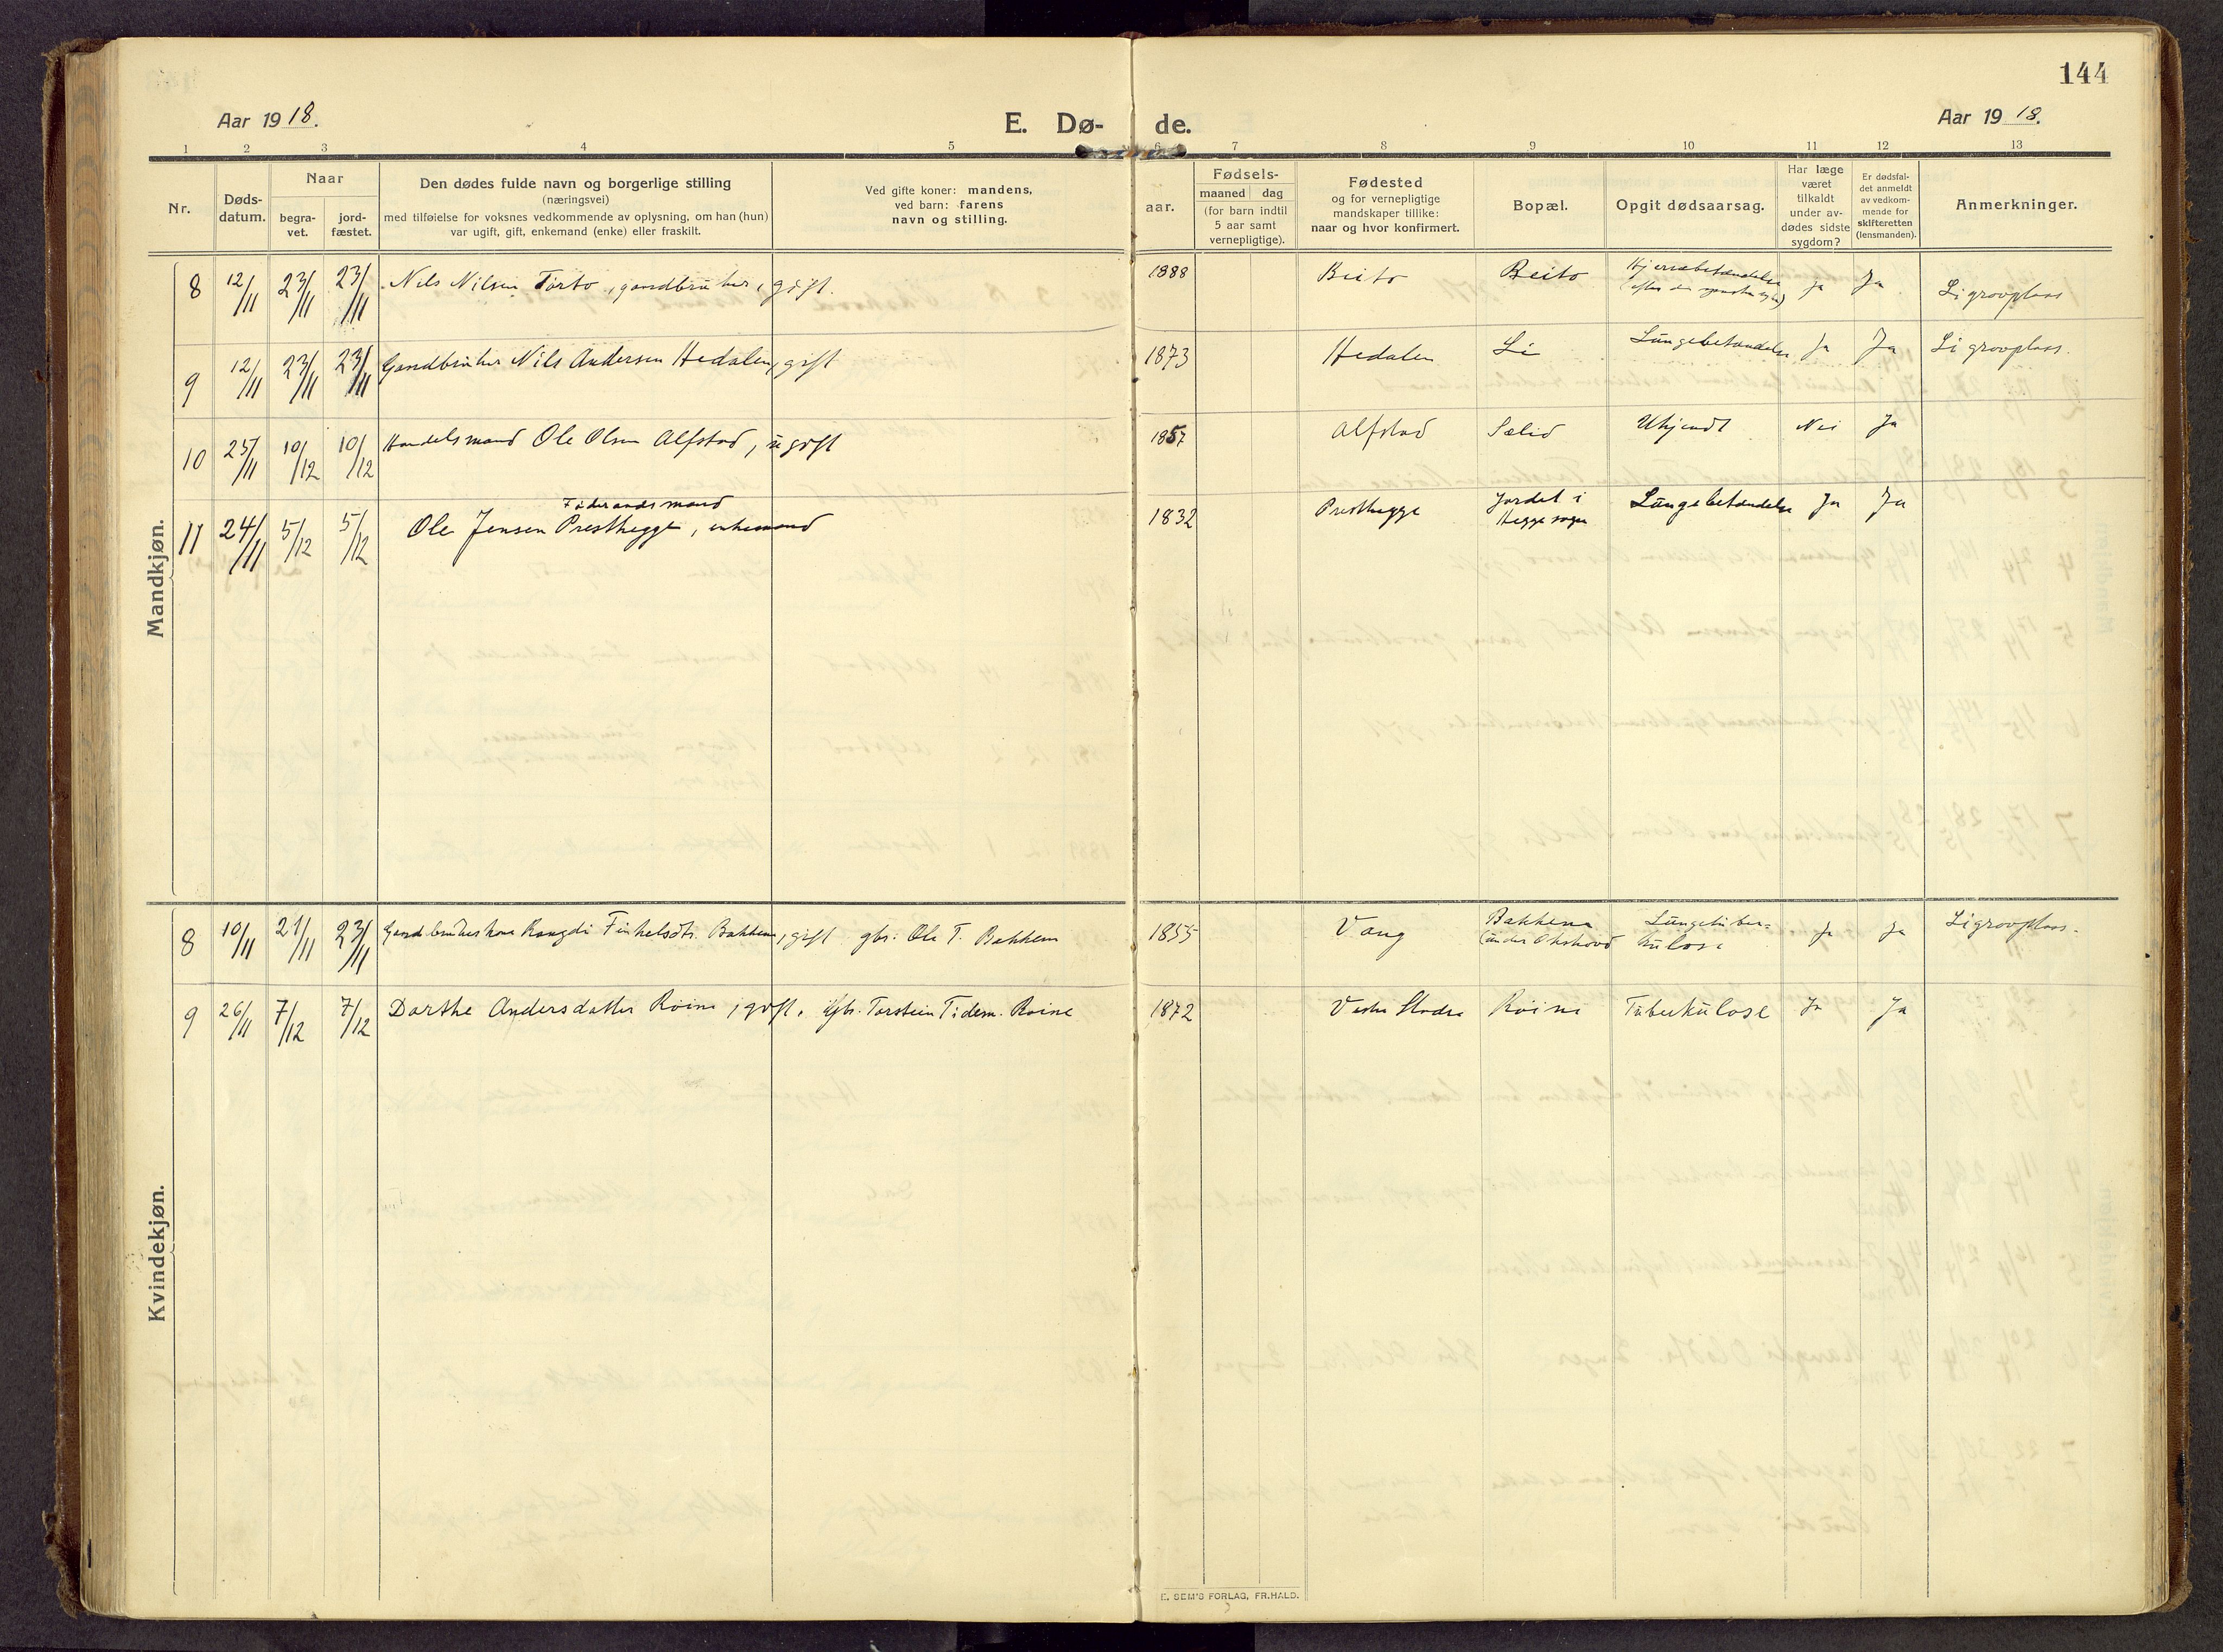 144
Aar 1918.
E. Dø-
de.
Aar 1918.
1 2 3 4 5 6 7 8 9 10 11 12 13
Nr.
Døds-
datum.
Naar
begra-
vet.
jord-
fæstet.
Den dødes fulde navn og borgerlige stilling
(næringsvei)
med tilføielse for voksnes vedkommende av oplysning, om han (hun)
var ugift, gift, enkemand (enke) eller fraskilt.
Ved gifte koner: mandens,
ved barn: farens
navn og stilling.
aar.
Fødsels-
maaned dag
(for barn indtil
5 aar samt
vernepligtige).
Fødested
og for vernepligtige
mandskaper tillike:
naar og hvor konfirmert.
Bopæl.
Opgit dødsaarsag.
Har læge
været
tilkaldt
under av-
dødes sidste
sygdom?
Er dødsfal-
det anmeldt
av vedkom-
mende for
skifteretten
(lensmanden).
Anmerkninger.
Mandkjøn.
8 12/11 23/11 23/11 Nils Nilsen Tørto, gaardbruker, gift. 1888 Beito Beito Hjernebetændelse Ja Ja Li gravplass
9 12/11 23/11 23/11 Gaardbruker Nils Andersen Hedalen, gift 1873 Hedalen Li Lungebetændelse Ja Ja Li gravplass.
10 25/11 10/12 10/12 Handelsmand Ole Olsen Alfstad, ugift 1857 Alfstad Sælid Ukjendt Nei Ja
Føderaadsmand
11 24/11 5/12 5/12 Ole Jensen Presthegge, enkemand 1832 Presthegge Jordet i Heggesogn Lungebetændelse Ja Ja
Kvindekjøn.
8 10/11 21/11 23/11 Gaardbrukerkone Rangdi Tinkelsdtr. Bakken, gift gbr. Ole T. Bakken 1855 Vang Bakkene Lungetuber- Ja Ja Li gravplass.
(under Okshovd kulose
9 26/11 7/12 7/12 Dorthe Andersdatter Røine, gift. gbr. Torstein Tidem. Røine 1872 Vestre Slidre Røine Tuberkulose Ja Ja
E. SEM'S FORLAG, FR.HALD.